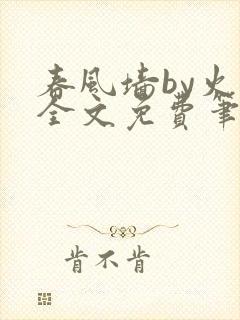 春风墙by火
全文免费笔
肯不肯